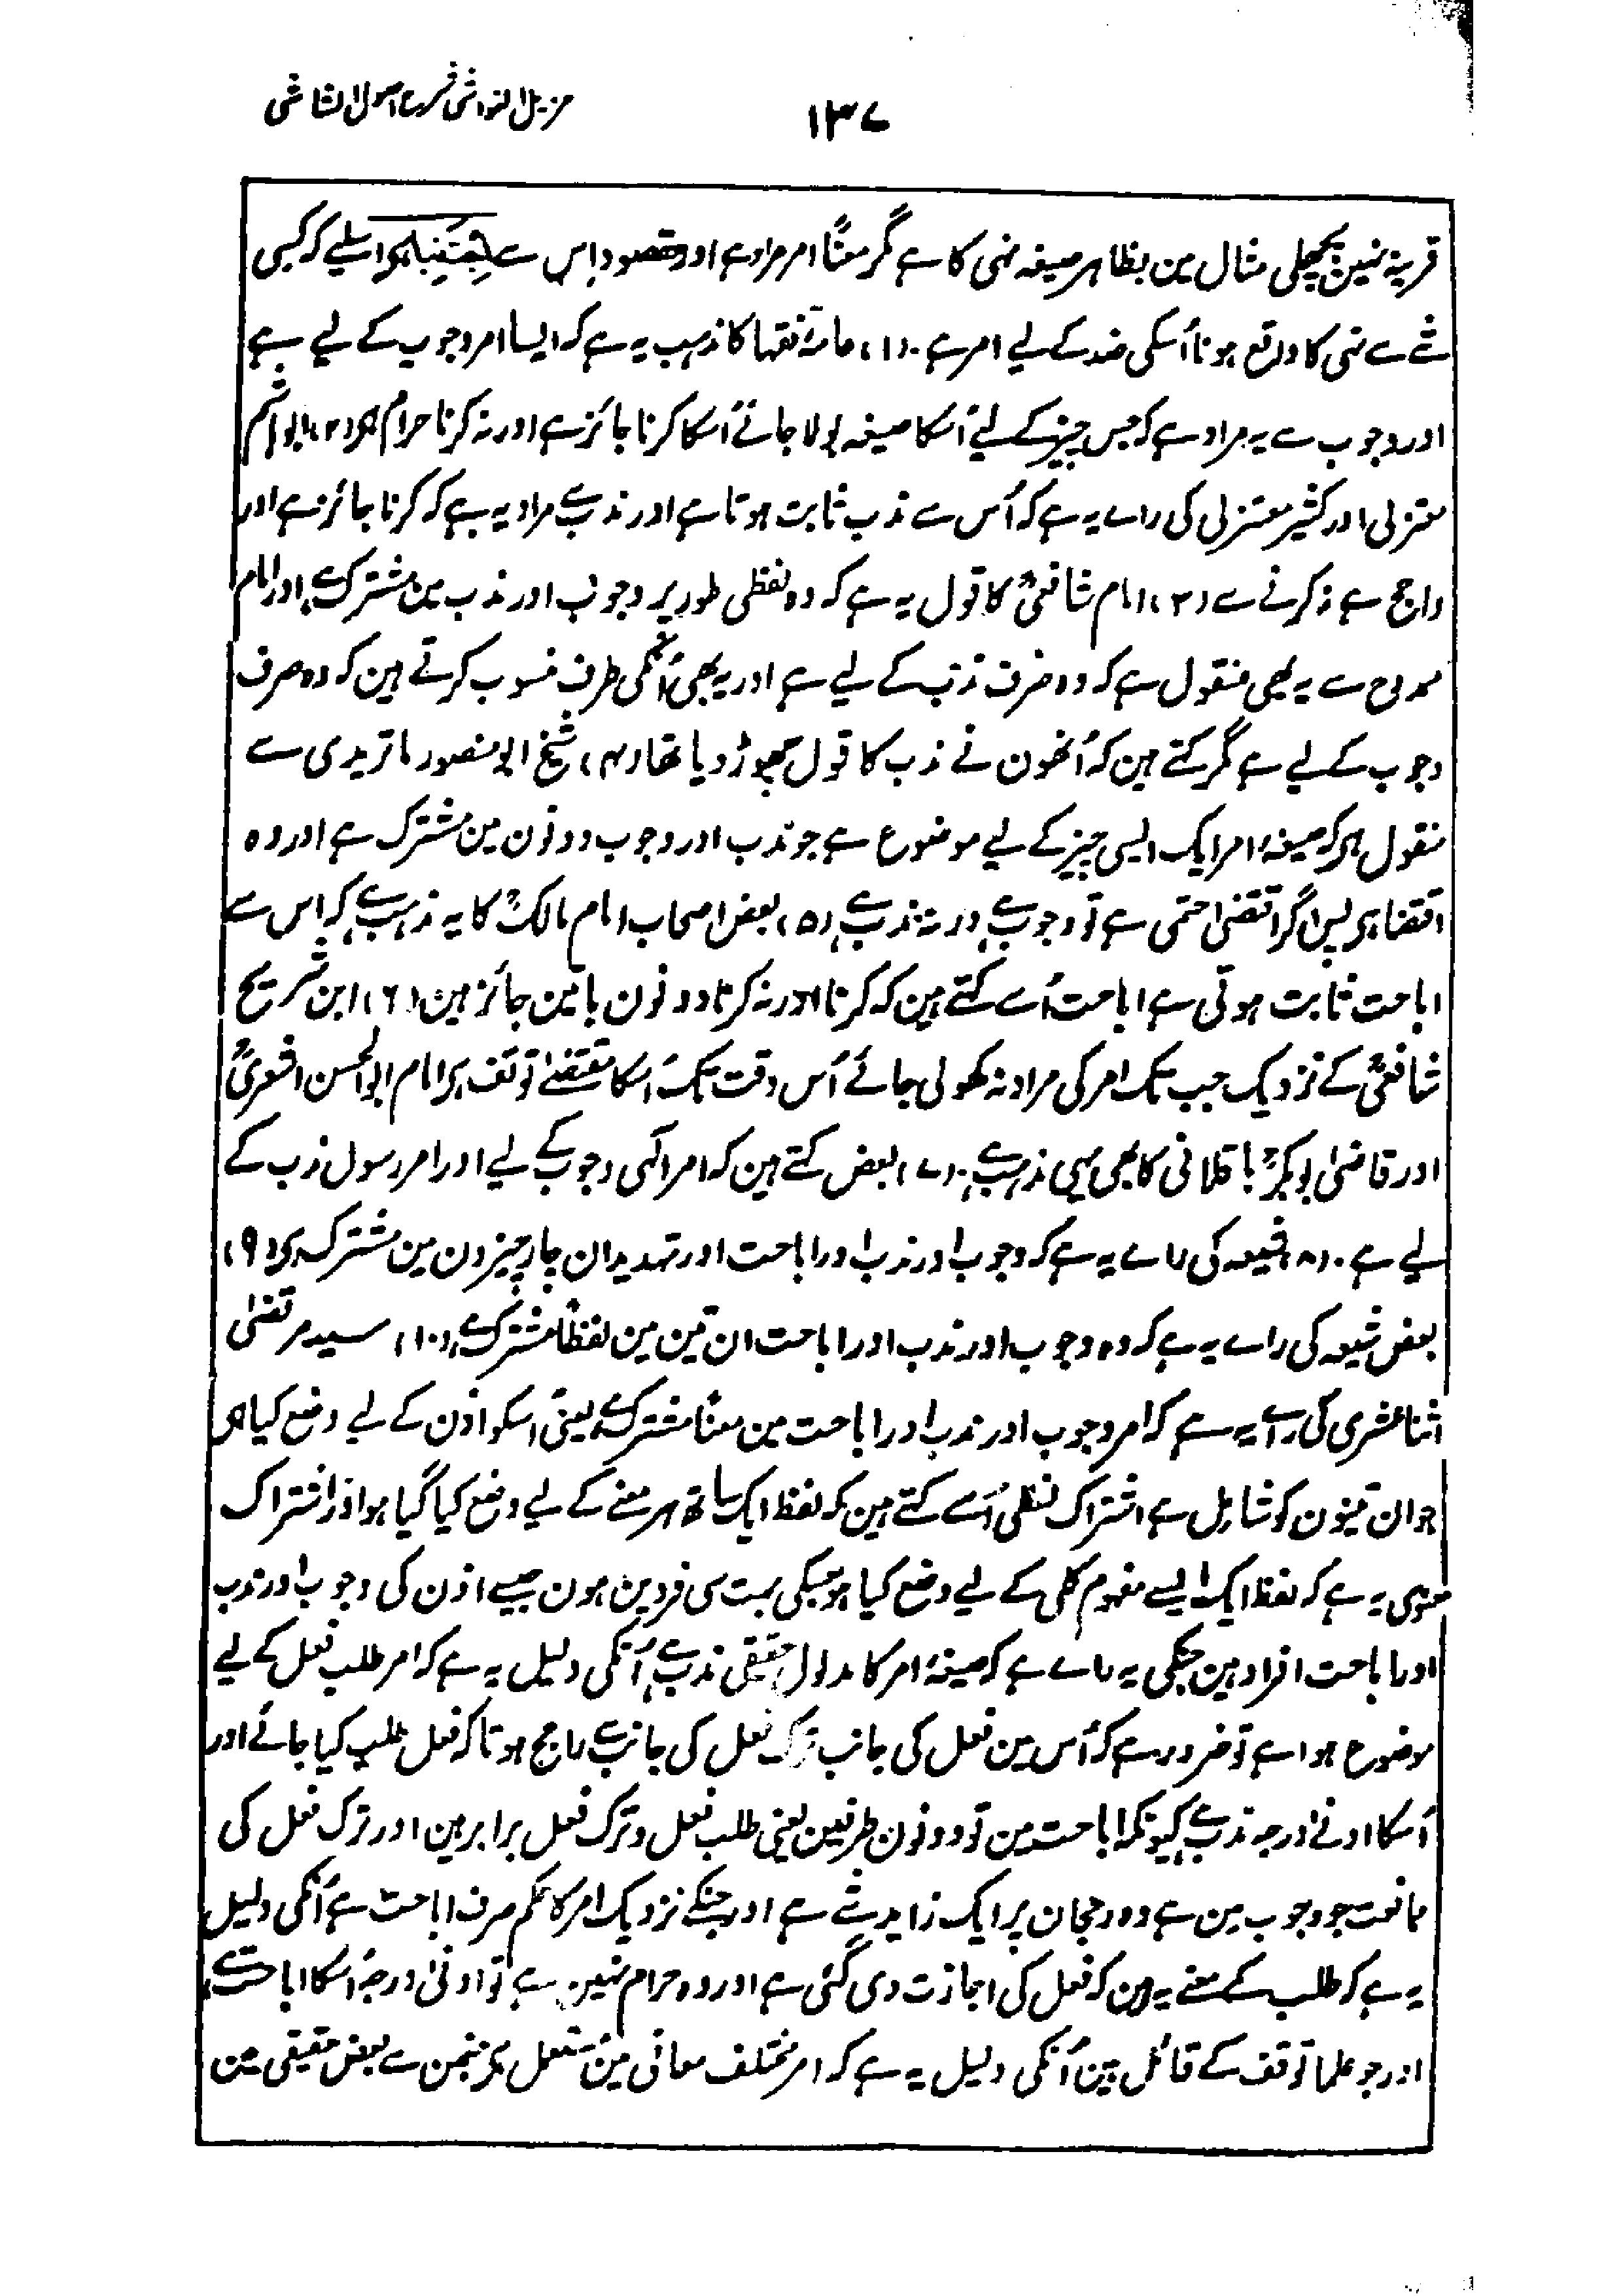 ۱۳۷
مزیل الغواشی شرح اصول الشاشی
قرینہ نہین پچھلی مثال مین بظاہر صیغہ نہی کا ہے مگر معنًا امر مراد ہے اور مقصود اِس سے اسلیے کہ کسی
شے سے نہی کا واقع ہونا اُسکی ضد کے لیے امر ہے۔ (۱) عامۂ فقہا کا مذہب یہ ہے کہ ایسا امر وجوب کے لیے ہے
اور وجوب سے یہ مراد ہے کہ جس چیز کے لیے اُسکا صیغہ بولا جائے اُسکا کرنا جائز ہے اور نہ کرنا حرام ہی (۲) ابو ہاشم
معتزلی اور کثیر معتزلی کی راے یہ ہے کہ اُس سے ندب ثابت ہوتا ہے اور ندب سے مراد یہ ہے کہ کرنا جائز ہے اور
راجح ہے نہ کرنے سے (۳) امام شافعیؒ کا قول یہ ہے کہ وہ لفظی طور پر وجوب اور ندب مین مشترک ہے اور امام
ممدوح سے یہ بھی منقول ہے کہ وہ صرف ندب کے لیے ہے اور یہ بھی اُنکی طرف منسوب کرتے ہین کہ وہ صرف
وجوب کے لیے ہے مگر کہتے ہین کہ اُنھون نے ندب کا قول چھوڑ دیا تھا (۴) شیخ ابو منصور ماتریدی سے
منقول ہی کہ صیغۂ امر ایک ایسی چیز کے لیے موضوع ہے جو ندب اور وجوب دونون مین مشترک ہے اور وہ
اقتضا ہی پس اگر اقتضیٰ حتمی ہے تو وجوب ہے ورنہ ندب ہے (۵) بعض اصحاب امام مالکؒ کا یہ مذہب ہے کہ اس سے
اباحت ثابت ہوتی ہے اباحت اُسے کہتے ہین کہ کرنا اور نہ کرنا دونون باتین جائز ہین (۶) ابن شریح
شافعیؒ کے نزدیک جب تک امر کی مراد نہ کھولی جائے اُس وقت تک اُسکا مقتضےٰ توقف ہی امام ابو الحسن اشعریؒ
اور قاضی ابوبکرؒ باقلانی کا بھی یہی مذہب ہے۔ (۷) بعض کہتے ہین کہ امر آلٰہی وجوب کے لیے اور امر رسول ندب کے
لیے ہے۔ (۸) شیعہ کی راے یہ ہے کہ وجوب اور ندب اور اباحت اور تہدید ان چار چیزون مین مشترک ہی (۹)
بعض شیعہ کی راے یہ ہے کہ وہ وجوب اور ندب اور اباحت ان تین مین لفظًا مشترک ہے (۱۰) سید مرتضیٰ
اثنا عشری کی راے یہ ہے کہ امر وجوب اور ندب اور اباحت مین معنًا مشترک ہے یعنی اسکو اذن کے لیے وضع کیا ہی
جو ان تینون کو شامل ہے اشتراک لفظی اُسے کہتے ہین کہ لفظ ایک ساتھ ہر معنے کے لیے وضع کیا گیا ہو اور اشتراک
معنوی یہ ہے کہ لفظ ایک ایسے مفہوم کلی کے لیے وضع کیا ہو جسکی بہت سی فردین ہون جیسے اذن کی وجوب اور ندب
اور اباحت افراد ہین جنکی یہ راے ہے کہ صیغۂ امر کا مدلول حقیقی ندب ہے اُنکی دلیل یہ ہے کہ امر طلب فعل کے لیے
موضوع ہوا ہے تو ضرور ہے کہ اُس مین فعل کی جانب ترک فعل کی جانب سے راجح ہو تاکہ فعل طلب کیا جائے اور
اُسکا ادنےٰ درجہ ندب ہے کیونکہ اباحت مین تو دونون طرفین یعنی طلب فعل و ترک فعل برابر ہین اور ترک فعل کی
ممانعت جو وجوب مین ہے وہ رجحان پر ایک زاید شے ہے اور جنکے نزدیک امر کا حکم صرف اباحت ہے اُنکی دلیل
یہ ہے کہ طلب کے معنے یہ ہین کہ فعل کی اجازت دی گئی ہے اور وہ حرام نہین ہے تو ادنیٰ درجہ اُسکا اباحت ہے
اور جو علما توقف کے قائل ہین اُنکی دلیل یہ ہے کہ امر مختلف معانی مین مستعمل ہی جنمین سے بعض حقیقی ہین